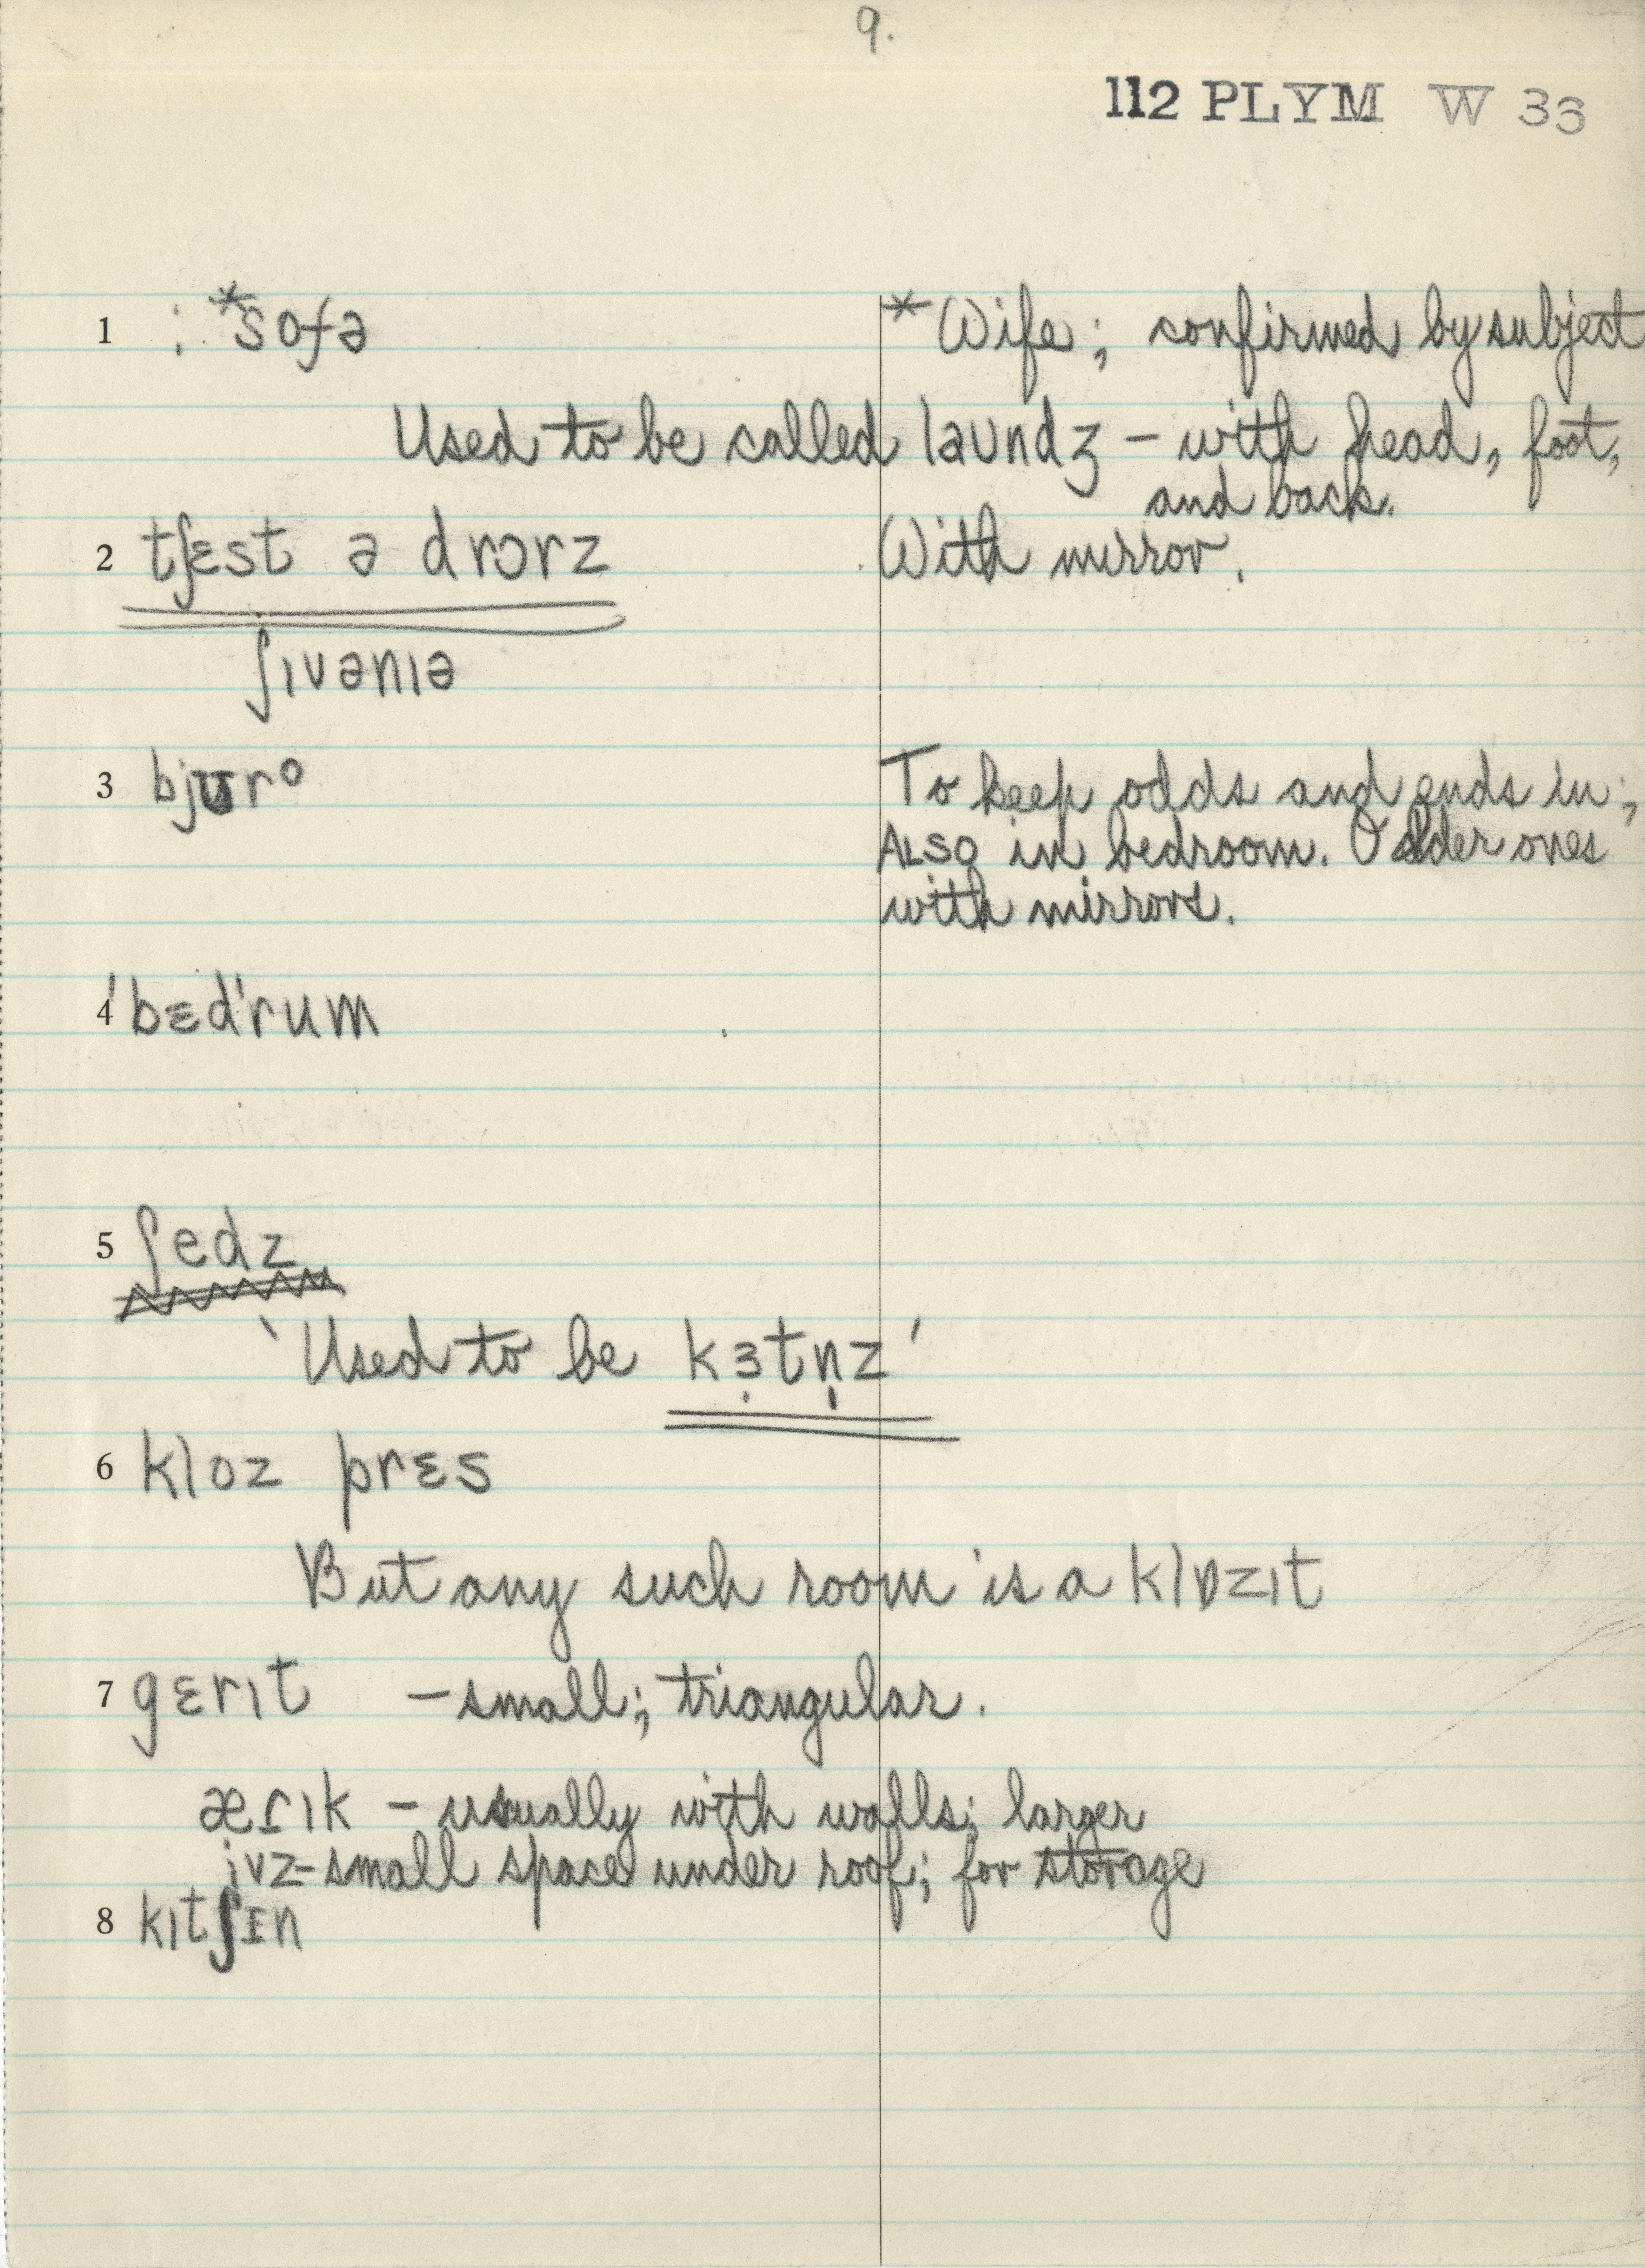 9.
112 PLYM W 33
1 : *sofə *Wife; confirmed by subject
Used to be called laundʒ – with head, foot,
and back.
2 tʃɛst ə drɔrz With mirror.
ʃɪvənɪə
3 bjʊro To keep odds and ends in;
ALSO in bedroom. Older ones
with mirrors.
4 'bɛd'rum
5 ʃedz
'Used to be kɜ̣tn̩z'
6 kloz prɛs
But any such room is a klɒzɪt
7 gɛrɪt – small; triangular.
ærɪk – usually with walls; larger
ivz – small space under roof; for storage
8 kɪtʃɪn